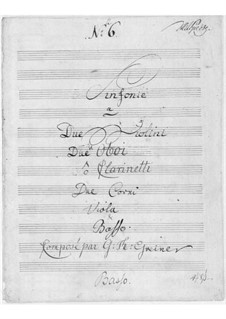 No. 6
Sinfonie
a
Due Violini
Due Oboi
o Clarinetti
Due Corni
Viola
e
Basso.
Composé par G. Fr:
Basso.